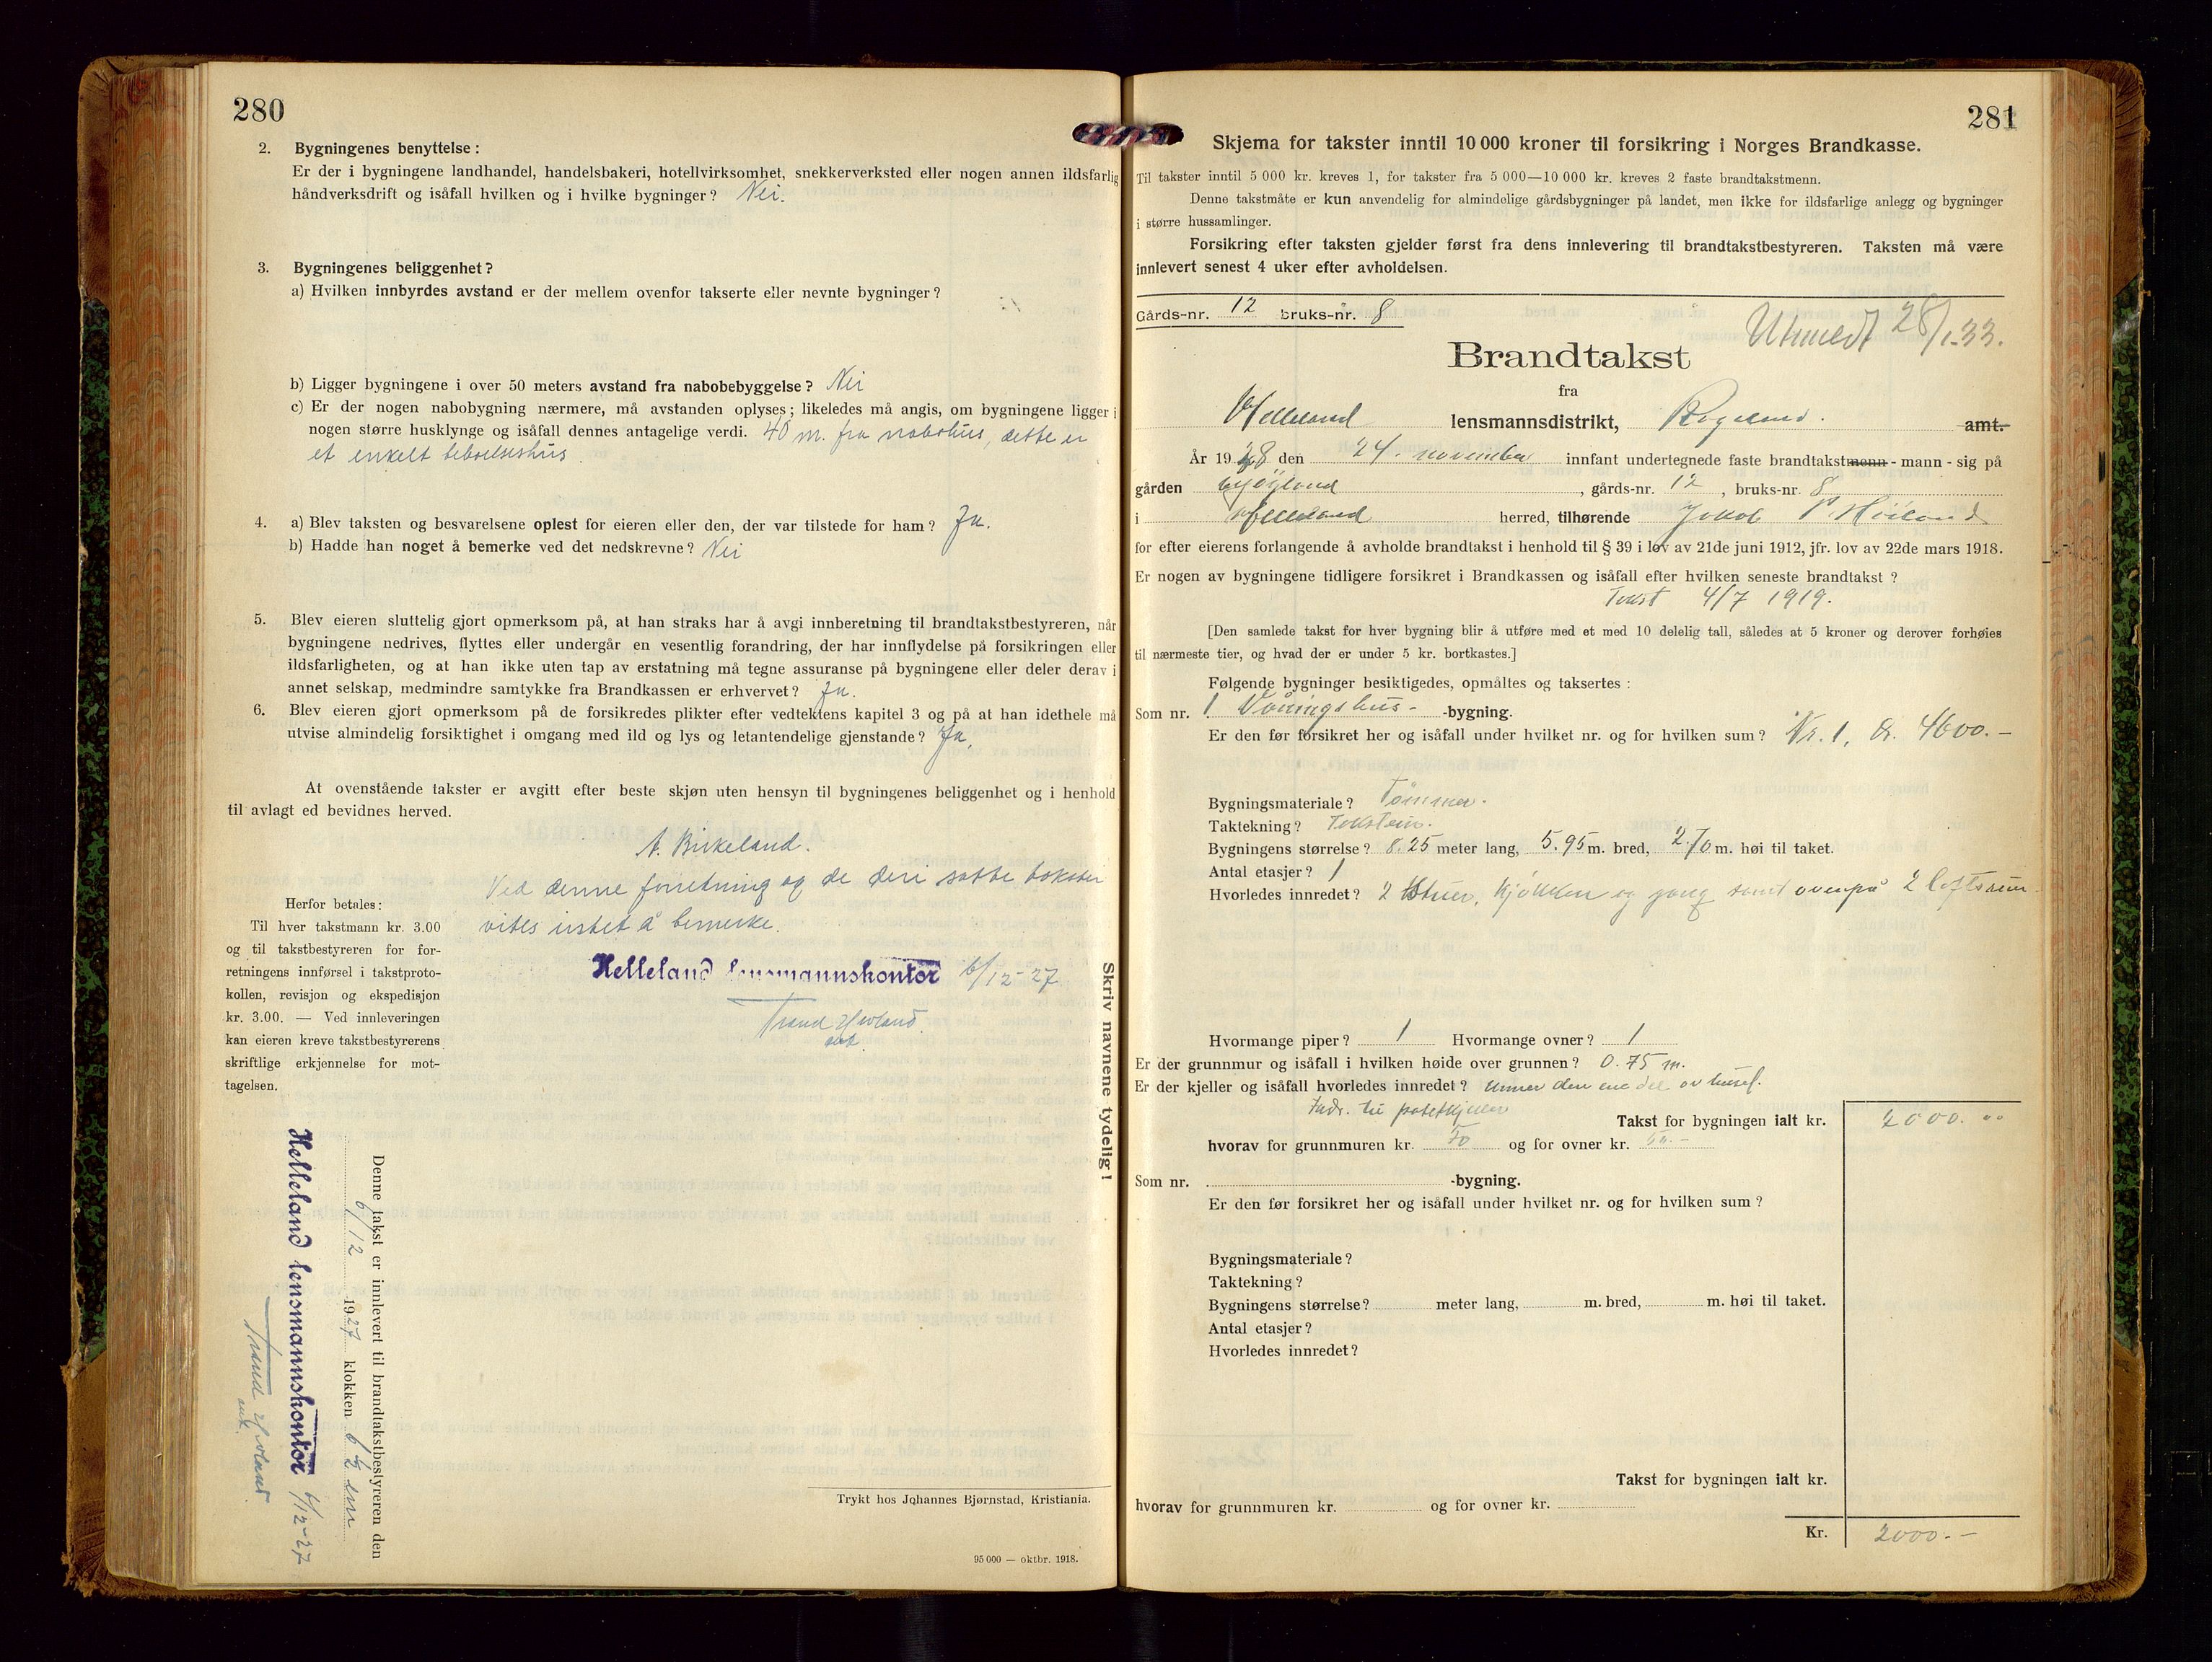 280
2. Bygningenes benyttelse:
Er der i bygningene landhandel, handelsbakeri, hotellvirksomhet, snekkerverksted eller nogen annen ildsfarlig
håndverksdrift og isåfall hvilken og i hvilke bygninger? Nei.
3. Bygningenes beliggenhet?
a) Hvilken innbyrdes avstand er der mellem ovenfor takserte eller nevnte bygninger?
b) Ligger bygningene i over 50 meters avstand fra nabobebyggelse? Nei
c) Er der nogen nabobygning nærmere, må avstanden oplyses; likeledes må angis, om bygningene ligger i
nogen større husklynge og isåfall dennes antagelige verdi. 40 m. fra nabohus, dette er
et enkelt beboelseshus.
4. a) Blev taksten og besvarelsene oplest for eieren eller den, der var tilstede for ham? Ja.
b) Hadde han noget å bemerke ved det nedskrevne? Nei
5. Blev eieren sluttelig gjort opmerksom på, at han straks har å avgi innberetning til brandtakstbestyreren, når
bygningene nedrives, flyttes eller undergår en vesentlig forandring, der har innflydelse på forsikringen eller
ildsfarligheten, og at han ikke uten tap av erstatning må tegne assuranse på bygningene eller deler derav i
annet selskap, medmindre samtykke fra Brandkassen er erhvervet? Ja.
6. Blev eieren gjort opmerksom på de forsikredes plikter efter vedtektens kapitel 3 og på at han idethele må
utvise almindelig forsiktighet i omgang med ild og lys og letantendelige gjenstande? Ja.
At ovenstående takster er avgitt efter beste skjøn uten hensyn til bygningenes beliggenhet og i henhold
til avlagt ed bevidnes herved.
A. Birkeland.
Ved denne forretning og de deri satte takster
vites intet å bemerke.
Helleland lensmannskontor 6/12-27
Herfor betales:
Til hver takstmann kr. 3.00
og til takstbestyreren for for-
retningens innførsel i takstproto-
kollen, revisjon og ekspedisjon
kr. 3.00. — Ved innleveringen
kan eieren kreve takstbestyrerens
skriftlige erkjennelse for mot-
tagelsen.
Skriv navnene tydelig!
Denne takst er innlevert til brandtakstbestyreren den
6/12 1927 klokken 6 1/2 em
Helleland lensmannskontor 6/12-27
Trykt hos Johannes Bjørnstad, Kristiania.
95 000 — oktbr. 1918.
281
Skjema for takster inntil 10 000 kroner til forsikring i Norges Brandkasse.
Til takster inntil 5 000 kr. kreves 1, for takster fra 5 000—10 000 kr. kreves 2 faste brandtakstmenn.
Denne takstmåte er kun anvendelig for almindelige gårdsbygninger på landet, men ikke for ildsfarlige anlegg og bygninger
i større hussamlinger.
Forsikring efter taksten gjelder først fra dens innlevering til brandtakstbestyreren. Taksten må være
innlevert senest 4 uker efter avholdelsen.
Gårds-nr. 12 bruks-nr. 8
Utmeldt 28/1-33.
Brandtakst
fra
Helleland lensmannsdistrikt, Rogaland. amt.
År 1928 den 24. november innfant undertegnede faste brandtakstmenn - mann - sig på
gården , gårds-nr. 12, bruks-nr. 8
i Helleland herred, tilhørende Jakob P. Høiland
for efter eierens forlangende å avholde brandtakst i henhold til § 39 i lov av 21de juni 1912, jfr. lov av 22de mars 1918.
Er nogen av bygningene tidligere forsikret i Brandkassen og isåfall efter hvilken seneste brandtakst?
Takst 4/7 1919.
[Den samlede takst for hver bygning blir å utføre med et med 10 delelig tall, således at 5 kroner og derover forhøies
til nærmeste tier, og hvad der er under 5 kr. bortkastes.]
Følgende bygninger besiktigedes, opmåltes og taksertes:
Som nr. 1 Våningshus- -bygning.
Er den før forsikret her og isåfall under hvilket nr. og for hvilken sum? Nr. 1, kr. 4600.-
Bygningsmateriale? Tømmer.
Taktekning? Takstein.
Bygningens størrelse? 8.25 meter lang, 5.95 m. bred, 2.70 m. høi til taket.
Antal etasjer? 1
Hvorledes innredet? 2 stuer, kjøkken og gang samt ovenpå 2 loftsrum.
Hvormange piper? 1 Hvormange ovner? 1
Er der grunnmur og isåfall i hvilken høide over grunnen? 0.75 m.
Er der kjeller og isåfall hvorledes innredet? Under den ene del av huset.
Indr. til potetkjeller
Takst for bygningen ialt kr. 2000.00
hvorav for grunnmuren kr. 50 og for ovner kr.
Som nr. -bygning.
Er den før forsikret her og isåfall under hvilket nr. og for hvilken sum?
Bygningsmateriale?
Taktekning?
Bygningens størrelse? meter lang, m. bred, m. høi til taket.
Antal etasjer?
Hvorledes innredet?
Takst for bygningen ialt kr.
hvorav for grunnmuren kr. og for ovner kr.
Kr. 2000.-